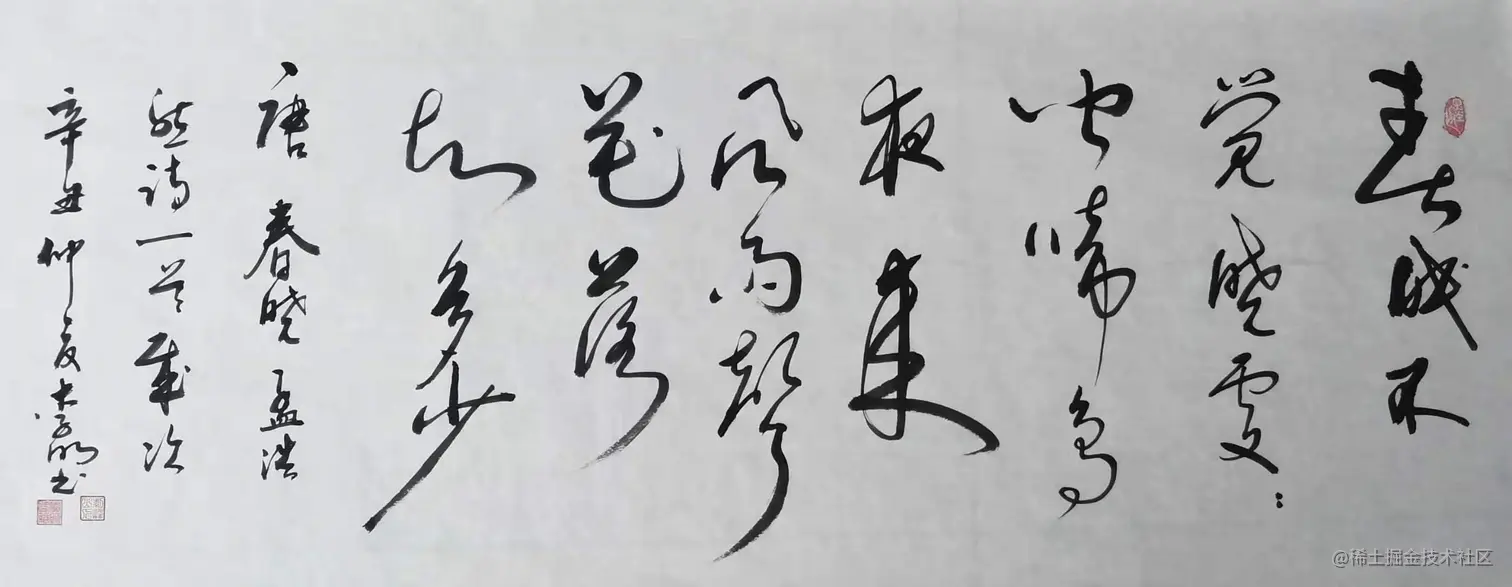 春眠不
觉晓處:
闻啼鸟
夜来
风雨聲
花落
知多少
唐 春晓 孟浩
然诗一首 岁次
辛丑仲夏李明书
@稀土掘金技术社区